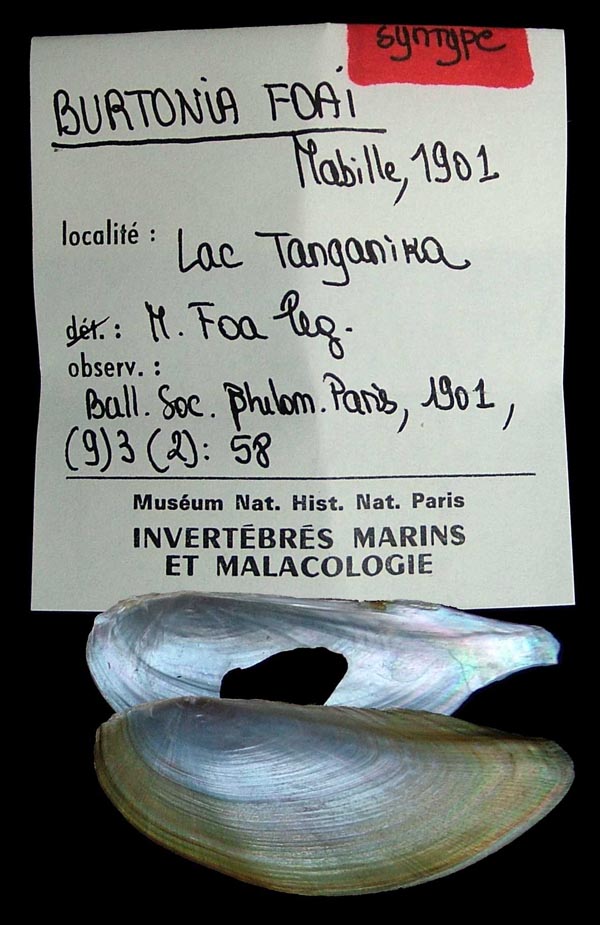 syntype
BURTONIA FOAI
Mabille, 1901
localité : Lac Tanganika
dét. : M. Foa leg.
observ. :
Bull. Soc. philom. Paris, 1901,
(9)3 (2): 58
Muséum Nat. Hist. Nat. Paris
INVERTÉBRÉS MARINS
ET MALACOLOGIE